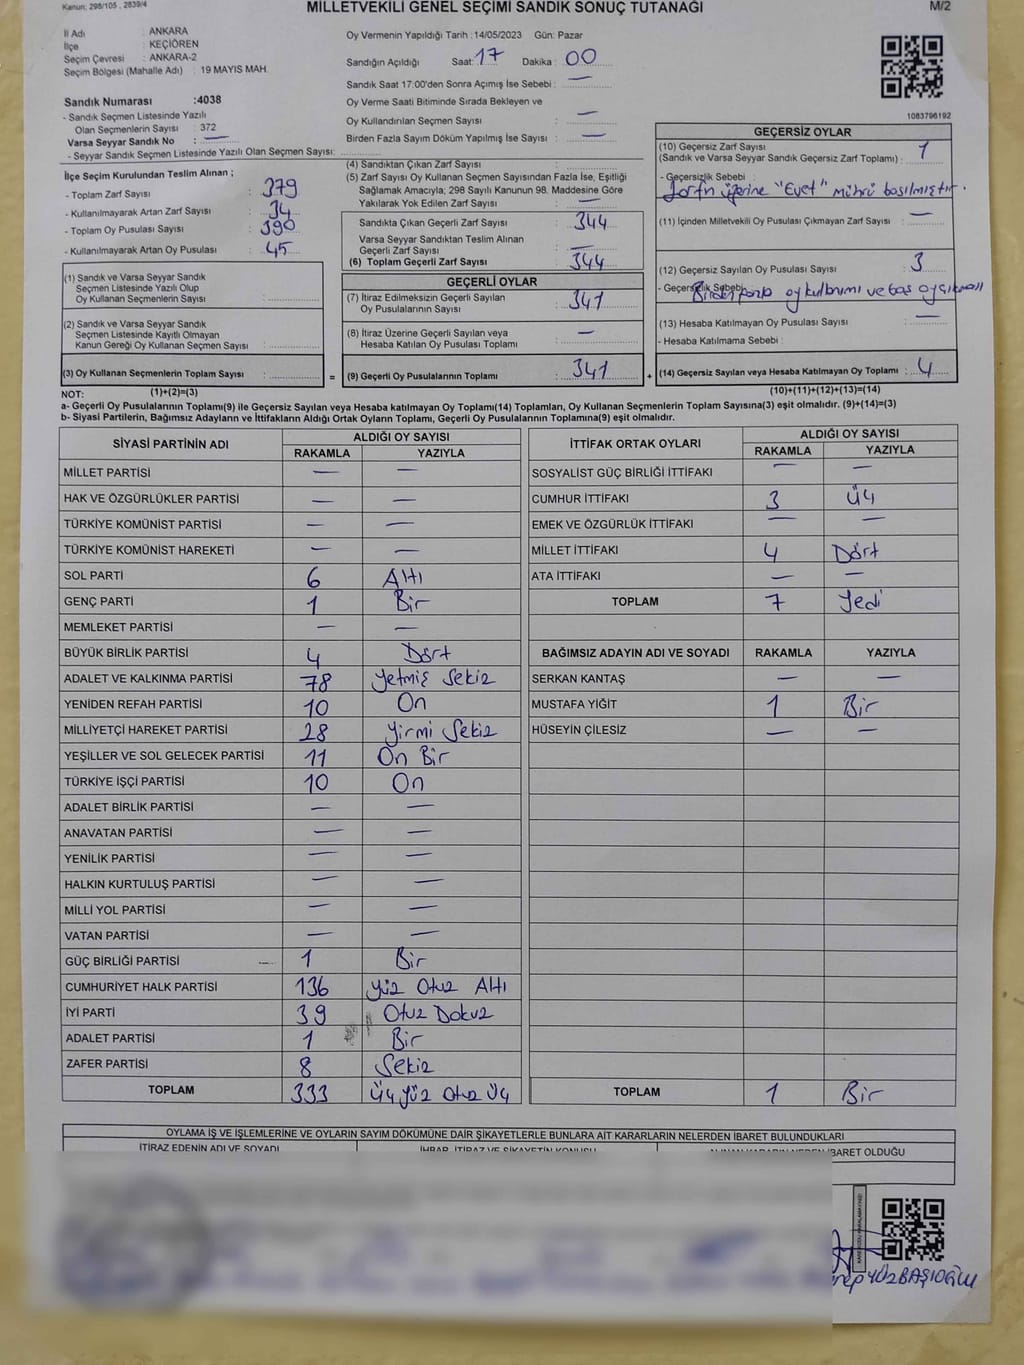 Kanun: 298/105 , 2839/4
MİLLETVEKİLİ GENEL SEÇİMİ SANDIK SONUÇ TUTANAĞI
M/2
İl Adı : ANKARA
İlçe : KEÇİÖREN
Seçim Çevresi : ANKARA-2
Seçim Bölgesi (Mahalle Adı) : 19 MAYIS MAH.
Oy Vermenin Yapıldığı Tarih :14/05/2023 Gün: Pazar
Sandığın Açıldığı Saat: 17 Dakika : 00
Sandık Saat 17:00'den Sonra Açımış İse Sebebi : —
Oy Verme Saati Bitiminde Sırada Bekleyen ve
Oy Kullandırılan Seçmen Sayısı : —
Birden Fazla Sayım Döküm Yapılmış İse Sayısı : —
1083796192
Sandık Numarası :4038
- Sandık Seçmen Listesinde Yazılı
Olan Seçmenlerin Sayısı : 372
Varsa Seyyar Sandık No : —
- Seyyar Sandık Seçmen Listesinde Yazılı Olan Seçmen Sayısı:
İlçe Seçim Kurulundan Teslim Alınan ;
- Toplam Zarf Sayısı : 379
- Kullanılmayarak Artan Zarf Sayısı : 34
- Toplam Oy Pusulası Sayısı : 390
- Kullanılmayarak Artan Oy Pusulası : 45
(1) Sandık ve Varsa Seyyar Sandık
Seçmen Listesinde Yazılı Olup
Oy Kullanan Seçmenlerin Sayısı :
(2) Sandık ve Varsa Seyyar Sandık
Seçmen Listesinde Kayıtlı Olmayan
Kanun Gereği Oy Kullanan Seçmen Sayısı :
(3) Oy Kullanan Seçmenlerin Toplam Sayısı :
(1)+(2)=(3)
=
(4) Sandıktan Çıkan Zarf Sayısı :
(5) Zarf Sayısı Oy Kullanan Seçmen Sayısından Fazla İse, Eşitliği
Sağlamak Amacıyla; 298 Sayılı Kanunun 98. Maddesine Göre
Yakılarak Yok Edilen Zarf Sayısı : —
Sandıkta Çıkan Geçerli Zarf Sayısı : 344
Varsa Seyyar Sandıktan Teslim Alınan
Geçerli Zarf Sayısı : —
(6) Toplam Geçerli Zarf Sayısı : 344
GEÇERLİ OYLAR
(7) İtiraz Edilmeksizin Geçerli Sayılan
Oy Pusulalarının Sayısı : 341
(8) İtiraz Üzerine Geçerli Sayılan veya
Hesaba Katılan Oy Pusulası Toplamı : —
(9) Geçerli Oy Pusulalarının Toplamı : 341
+
GEÇERSİZ OYLAR
(10) Geçersiz Zarf Sayısı
(Sandık ve Varsa Seyyar Sandık Geçersiz Zarf Toplamı) : 1
- Geçersizlik Sebebi :
Zarfın üzerine "Evet" mührü basılmıştır.
(11) İçinden Milletvekili Oy Pusulası Çıkmayan Zarf Sayısı : —
(12) Geçersiz Sayılan Oy Pusulası Sayısı : 3
- Geçersizlik Sebebi :
Birden fazla oy kullanımı ve boş oy çıkması
(13) Hesaba Katılmayan Oy Pusulası Sayısı : —
- Hesaba Katılmama Sebebi :
(14) Geçersiz Sayılan veya Hesaba Katılmayan Oy Toplamı : 4
(10)+(11)+(12)+(13)=(14)
NOT:
a- Geçerli Oy Pusulalarının Toplamı(9) ile Geçersiz Sayılan veya Hesaba katılmayan Oy Toplamı(14) Toplamları, Oy Kullanan Seçmenlerin Toplam Sayısına(3) eşit olmalıdır. (9)+(14)=(3)
b- Siyasi Partilerin, Bağımsız Adayların ve İttifakların Aldığı Ortak Oyların Toplamı, Geçerli Oy Pusulalarının Toplamına(9) eşit olmalıdır.
SİYASİ PARTİNİN ADI ALDIĞI OY SAYISI
RAKAMLA YAZIYLA
MİLLET PARTİSİ — —
HAK VE ÖZGÜRLÜKLER PARTİSİ — —
TÜRKİYE KOMÜNİST PARTİSİ — —
TÜRKİYE KOMÜNİST HAREKETİ — —
SOL PARTİ 6 Altı
GENÇ PARTİ 1 Bir
MEMLEKET PARTİSİ — —
BÜYÜK BİRLİK PARTİSİ 4 Dört
ADALET VE KALKINMA PARTİSİ 78 Yetmiş Sekiz
YENİDEN REFAH PARTİSİ 10 On
MİLLİYETÇİ HAREKET PARTİSİ 28 Yirmi Sekiz
YEŞİLLER VE SOL GELECEK PARTİSİ 11 On Bir
TÜRKİYE İŞÇİ PARTİSİ 10 On
ADALET BİRLİK PARTİSİ — —
ANAVATAN PARTİSİ — —
YENİLİK PARTİSİ — —
HALKIN KURTULUŞ PARTİSİ — —
MİLLİ YOL PARTİSİ — —
VATAN PARTİSİ — —
GÜÇ BİRLİĞİ PARTİSİ 1 Bir
CUMHURİYET HALK PARTİSİ 136 Yüz Otuz Altı
İYİ PARTİ 39 Otuz Dokuz
ADALET PARTİSİ 1 Bir
ZAFER PARTİSİ 8 Sekiz
TOPLAM 333 Üç Yüz Otuz Üç
İTTİFAK ORTAK OYLARI ALDIĞI OY SAYISI
RAKAMLA YAZIYLA
SOSYALİST GÜÇ BİRLİĞİ İTTİFAKI — —
CUMHUR İTTİFAKI 3 Üç
EMEK VE ÖZGÜRLÜK İTTİFAKI — —
MİLLET İTTİFAKI 4 Dört
ATA İTTİFAKI — —
TOPLAM 7 Yedi
BAĞIMSIZ ADAYIN ADI VE SOYADI RAKAMLA YAZIYLA
SERKAN KANTAŞ — —
MUSTAFA YİĞİT 1 Bir
HÜSEYİN ÇİLESİZ — —
TOPLAM 1 Bir
OYLAMA İŞ VE İŞLEMLERİNE VE OYLARIN SAYIM DÖKÜMÜNE DAİR ŞİKAYETLERLE BUNLARA AİT KARARLARIN NELERDEN İBARET BULUNDUKLARI
İTİRAZ EDENİN ADI VE SOYADI İHBAR, İTİRAZ VE ŞİKAYETİN KONUSU İBARET OLDUĞU
YÜZBAŞIOĞLU